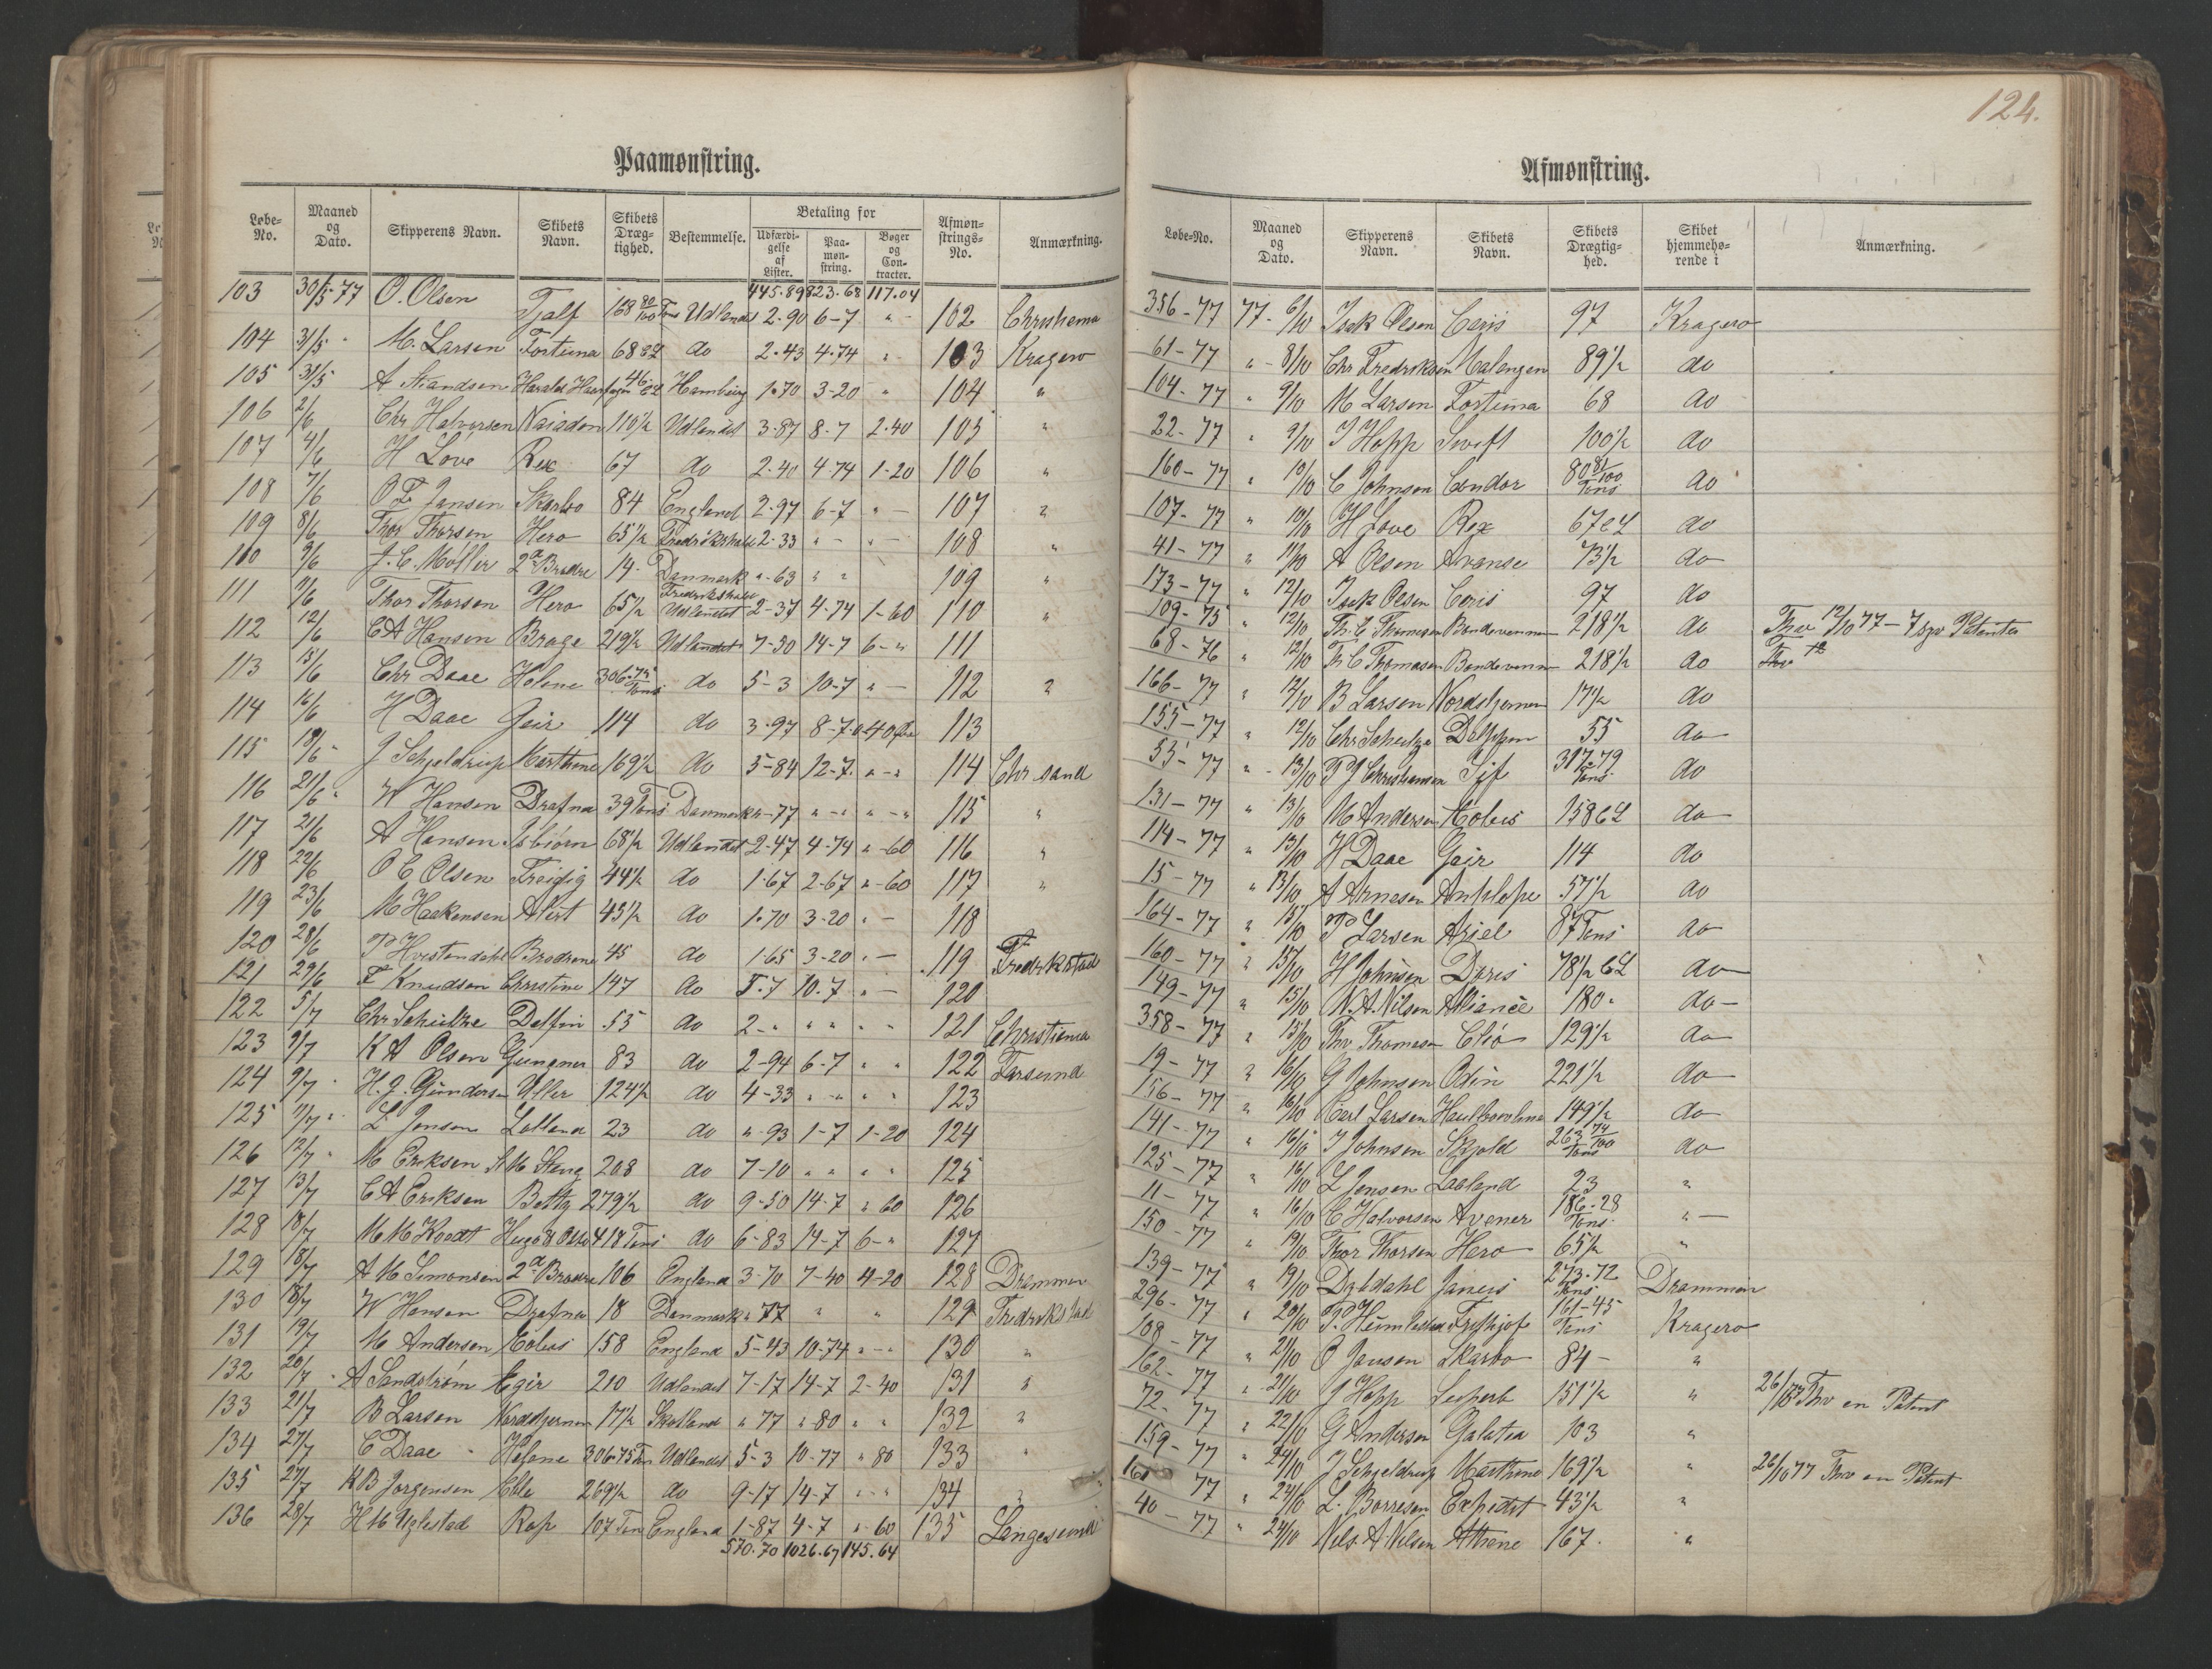 124.
Paamønstring.
Løbe-No. Maaned og Dato. Skipperens Navn. Skibets Navn. Skibets Dræg-tighed. Bestemmelse. Betaling for Udfærdi-gelse af Lister. Paa-møn-string. Bøger og Con-tracter. Afmøn-strings-No. Anmærkning.
445.89 823.68 117.04
103 30/5-77 O. Olsen Tjalf 168 80/100 Tons Udlandet 2-90 6-7 " - 102 Christiania
104 31/5 " M. Larsen Fortuna 68 CL do 2-43 4-74 " - 103 Kragerø
105 31/5 A Hamburg 1-70 3-20 " 104 "
106 2/6 Chr Halvorsen Naiaden 110½ Udlandet 3-87 8-7 2-40 105 "
107 4/6 H Love Rex 67 do 2-40 4-74 1-20 106 "
108 7/6 Jansen Skarbo 84 England 2-97 6-7 " - 107 "
109 8/6 Thor Thorsen Hero 65½ Fredrikshald 2-33 " - " - 108 "
110 9/6 J. C. Møller 2de Brødre 14- Danmark "-63 " " 109 "
111 9/6 Thor Thorsen Hero 65½ Fredrikshald Udlandet 2-37 4-74 1-60 110 "
112 12/6 C A Hansen Brage 219½ Udlandet 7-30 14-7 6-" 111
113 15/6 Chr Daae Helene 306-75 Tons do 5-3 10-7 " - 112 "
114 16/6 H Daae Geir 114 do 3-97 8-7 0-40 113
115 18/6 " J Schjeldrup Marthine 169½ do 5-84 12-7 " - " 114 Chr sand
116 21/6 " W Hansen Drafna 39 Tons Danmark "-77 " - " " - " 115 "
117 21/6 A Hansen Isbiørn 68½ Udlandet 2-47 4-74 "-60 116 "
118 22/6 O C Olsen Freidig 44½ do 1-67 2-67 "-60 117 "
119 23/6 M Haakensen Alert 45½ do 1-70 3-20 " - 118
120 28/6 P Hvistendahl Brødrene 45 do 1-65 3-20 " - 119 Fredrikstad
121 29/6 F Knudsen Christine 147 do 5-7 10-7 " - 120
122 5/7 Chr Schultze Delfin 55 do 2-" " " " " 121 Christiania
123 9/7 K A Olsen Gungner 83 do 2-94 6-7 " " 122 Farsund
124 9/7 " H. J. Gundersen Uller 124½ do 4-33 " - " " " 123
125 11/7 " L Jensen Lolland 23 do "-93 1-7 1-20 124
126 12/7 " M Eriksen St M Stang 208 do 7-10 " " " " 125
127 13/7 C A Eriksen Betty 279½ do 9-50 14-7 " 60 126
128 18/7 M M Koedt Hugo & Otto 418 Tons do 6-83 14-7 6-" 127
129 18/7 A M Simonsen 2de Brødre 106 England 3-70 7-40 4-20 128 Drammen
130 18/7 W Hansen Drafna 18 Danmark "-77 " " 129 Fredrikstad
131 19/7 M Andersen Æolus 158 England 5-43 10-74 " - " 130 "
132 20/7 A Sandstrøm Ægir 210 Udlandet 7-17 14-7 2-40 131 "
133 21/7 B Larsen Nordstjernen 17½ Skotland "-77 "-80 " " 132 "
134 27/7 C Daae Helene 306-75 Tons Udlandet 5-3 10-77 "-80 133 "
135 27/7 K B Jorgensen Eble 269½ do 9-17 14-7 " - " 134 "
136 28/7 H M Uglestad Rap 107 Tons England 1-87 4-7 "-60 135 Langesund
570.70 1026.67 145.64
Afmønstring.
Løbe-No. Maaned og Dato. Skipperens Navn. Skibets Navn. Skibets Drægtig-hed. Skibet hjemmehø-rende i Anmærkning.
356-77 77- 6/10 Isak Olsen Ceris 97 Kragerø
61-77 " - 8/10 Chr Fredriksen Malengen 89½ do
104-77 " 9/10 M Larsen Fortuna 68 do
22-77 " 9/10 J Hopp Swift 100½ do
160-77 " 10/10 C Johnsen Condor 80 81/100 Tons do
107-77 " 10/10 H Love Rex 67 CL do
41-77 " 11/10 A Olsen Avanse 73½ do
173-77 " 12/10 Isak Olsen Ceris 97 do
109-75 " 12/10 Th. C Thomesen Bondevennen 218½ do Thv 12/10 77 - 7 Patenter
68-76 " 12/10 Th C Thomasen Bondevennen 218½ do Thv 12
166-77 " 12/10 B Larsen Nordstjernen 17½ do
155-77 " 12/10 Chr Schultze Delfinen 55 do
55-77 " - 13/10 P J Christiansen Sif 317-79 Tons do
131-77 " 13/10 M Andersen Æolus 158 CL do
114-77 " 13/10 H Daae Geir 114 do
15-77 " 13/10 A Arnesen Anthlope 57½ do
164-77 " 15/10 P Larsen Ariel 87 Tons do
160-77 " 15/10 H Johnsen Doris 78½ CL do
149-77 " 15/10 N. A. Nilsen Alliance 180 do
358-77 " 15/10 Thv Thomesen Clio 129½ do
19-77 " 16/10 G Johnsen Odin 221½ do
156-77 " 16/10 Carl Larsen 149½ do
141-77 " 16/10 J Johnsen Skjold 263 74/100 Tons do
125-77 " 16/10 L Jensen Laaland 23 "
11-77 " 16/10 C Halvorsen Avener 186-28 Tons "
150-77 " 19/10 Thor Thorsen Hero 65½ "
139-77 " 19/10 Dybdahl Janus 273-72 Tons Drammen
296-77 " 20/10 P. Frithjof 161-45 Tons Kragerø
108-77 " 21/10 O Jansen Skarbo 84 "
162-77 " 21/10 J Hopp Superb 151½ " 26/10 77 Thv en Patent
72-77 " 22/10 G Andersen Galatea 103 "
159-77 " 24/10 J Schjeldrup Marthine 169½ " 26/10 77 Thv en Patent
161-77 " 24/10 L. Børresen Expedit 43½ "
40-77 " 24/10 Nils A Nilsen Athene 167 "